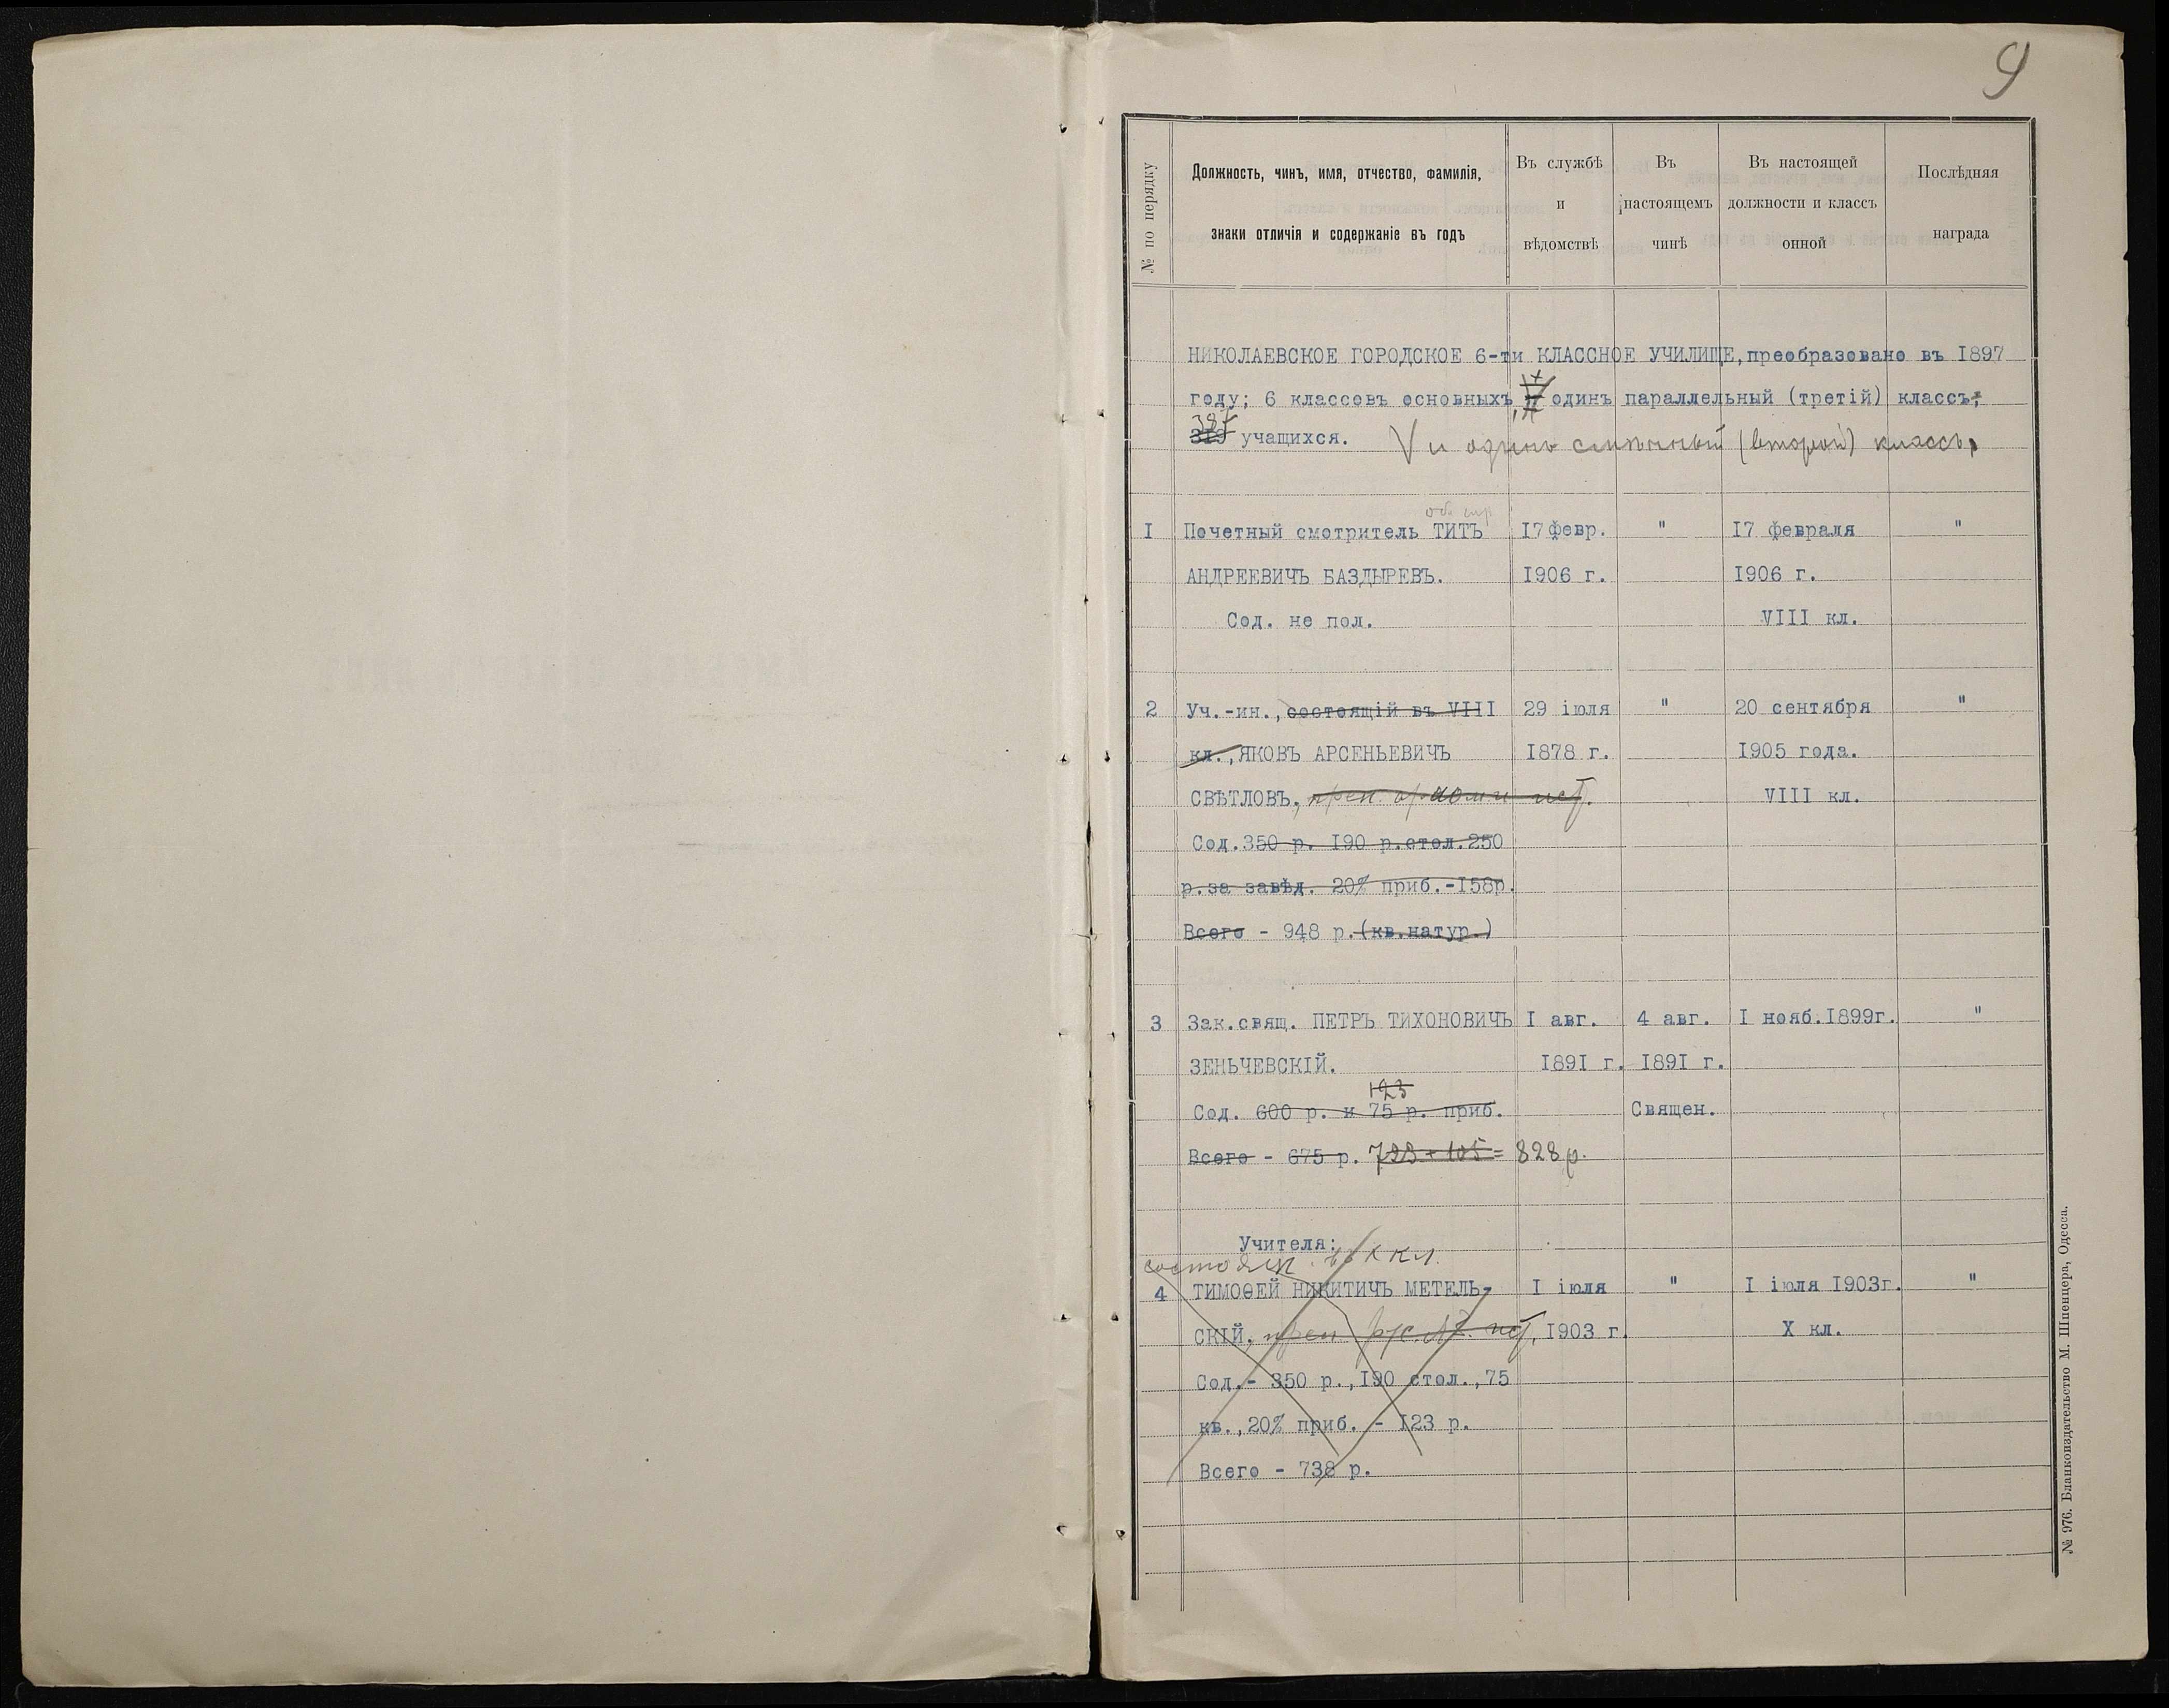 9
№ по перядку
Должность, чинъ, имя, отчество, фамилія,
знаки отличія и содержаніе въ годъ
Въ службѣ
и
вѣдомствѣ
Въ
настоящемъ
чинѣ
Въ настоящей
должности и классъ
онной
Послѣдняя
награда
НИКОЛАЕВСКОЕ ГОРОДСКОЕ 6-ти КЛАССНОЕ УЧИЛИЩЕ, преобразовано въ 1897
году; 6 классовъ основныхъ, одинъ параллельный (третій) классъ;
387
319 учащихся. V и одинъ смѣнный (второй) классъ,
1 Почетный смотритель ТИТЪ 17 февр. " 17 февраля "
АНДРЕЕВИЧЪ БАЗДЫРЕВЪ. 1906 г. 1906 г.
Сод. не пол. VIII кл.
2 Уч.-ин., состоящій въ VIII 29 іюля " 20 сентября "
кл., ЯКОВЪ АРСЕНЬЕВИЧЪ 1878 г. 1905 года.
СВѢТЛОВЪ, преп. VIII кл.
Сод. 350 р. 190 р. стол. 250
р. за завѣд. 20% приб. - 158р.
Всего - 948 р. (кв. натур.)
3 Зак. свящ. ПЕТРЪ ТИХОНОВИЧЪ I авг. 4 авг. I нояб. 1899г. "
ЗЕНЬЧЕВСКІЙ. 1891 г. 1891 г.
123
Сод. 600 р. и 75 р. приб. Священ.
Всего - 675 р. 723 + 105 = 828 р.
Учителя:
состоящ. въ X кл.
4 ТИМОѲЕЙ НИКИТИЧЪ МЕТЕЛЬ- I іюля " I іюля 1903г. "
СКІЙ, преп. 1903 г. X кл.
Сод. - 350 р., 190 стол., 75
кв., 20% приб. - 123 р.
Всего - 738 р.
№ 976. Бланкоиздательство М. Шпенцера, Одесса.